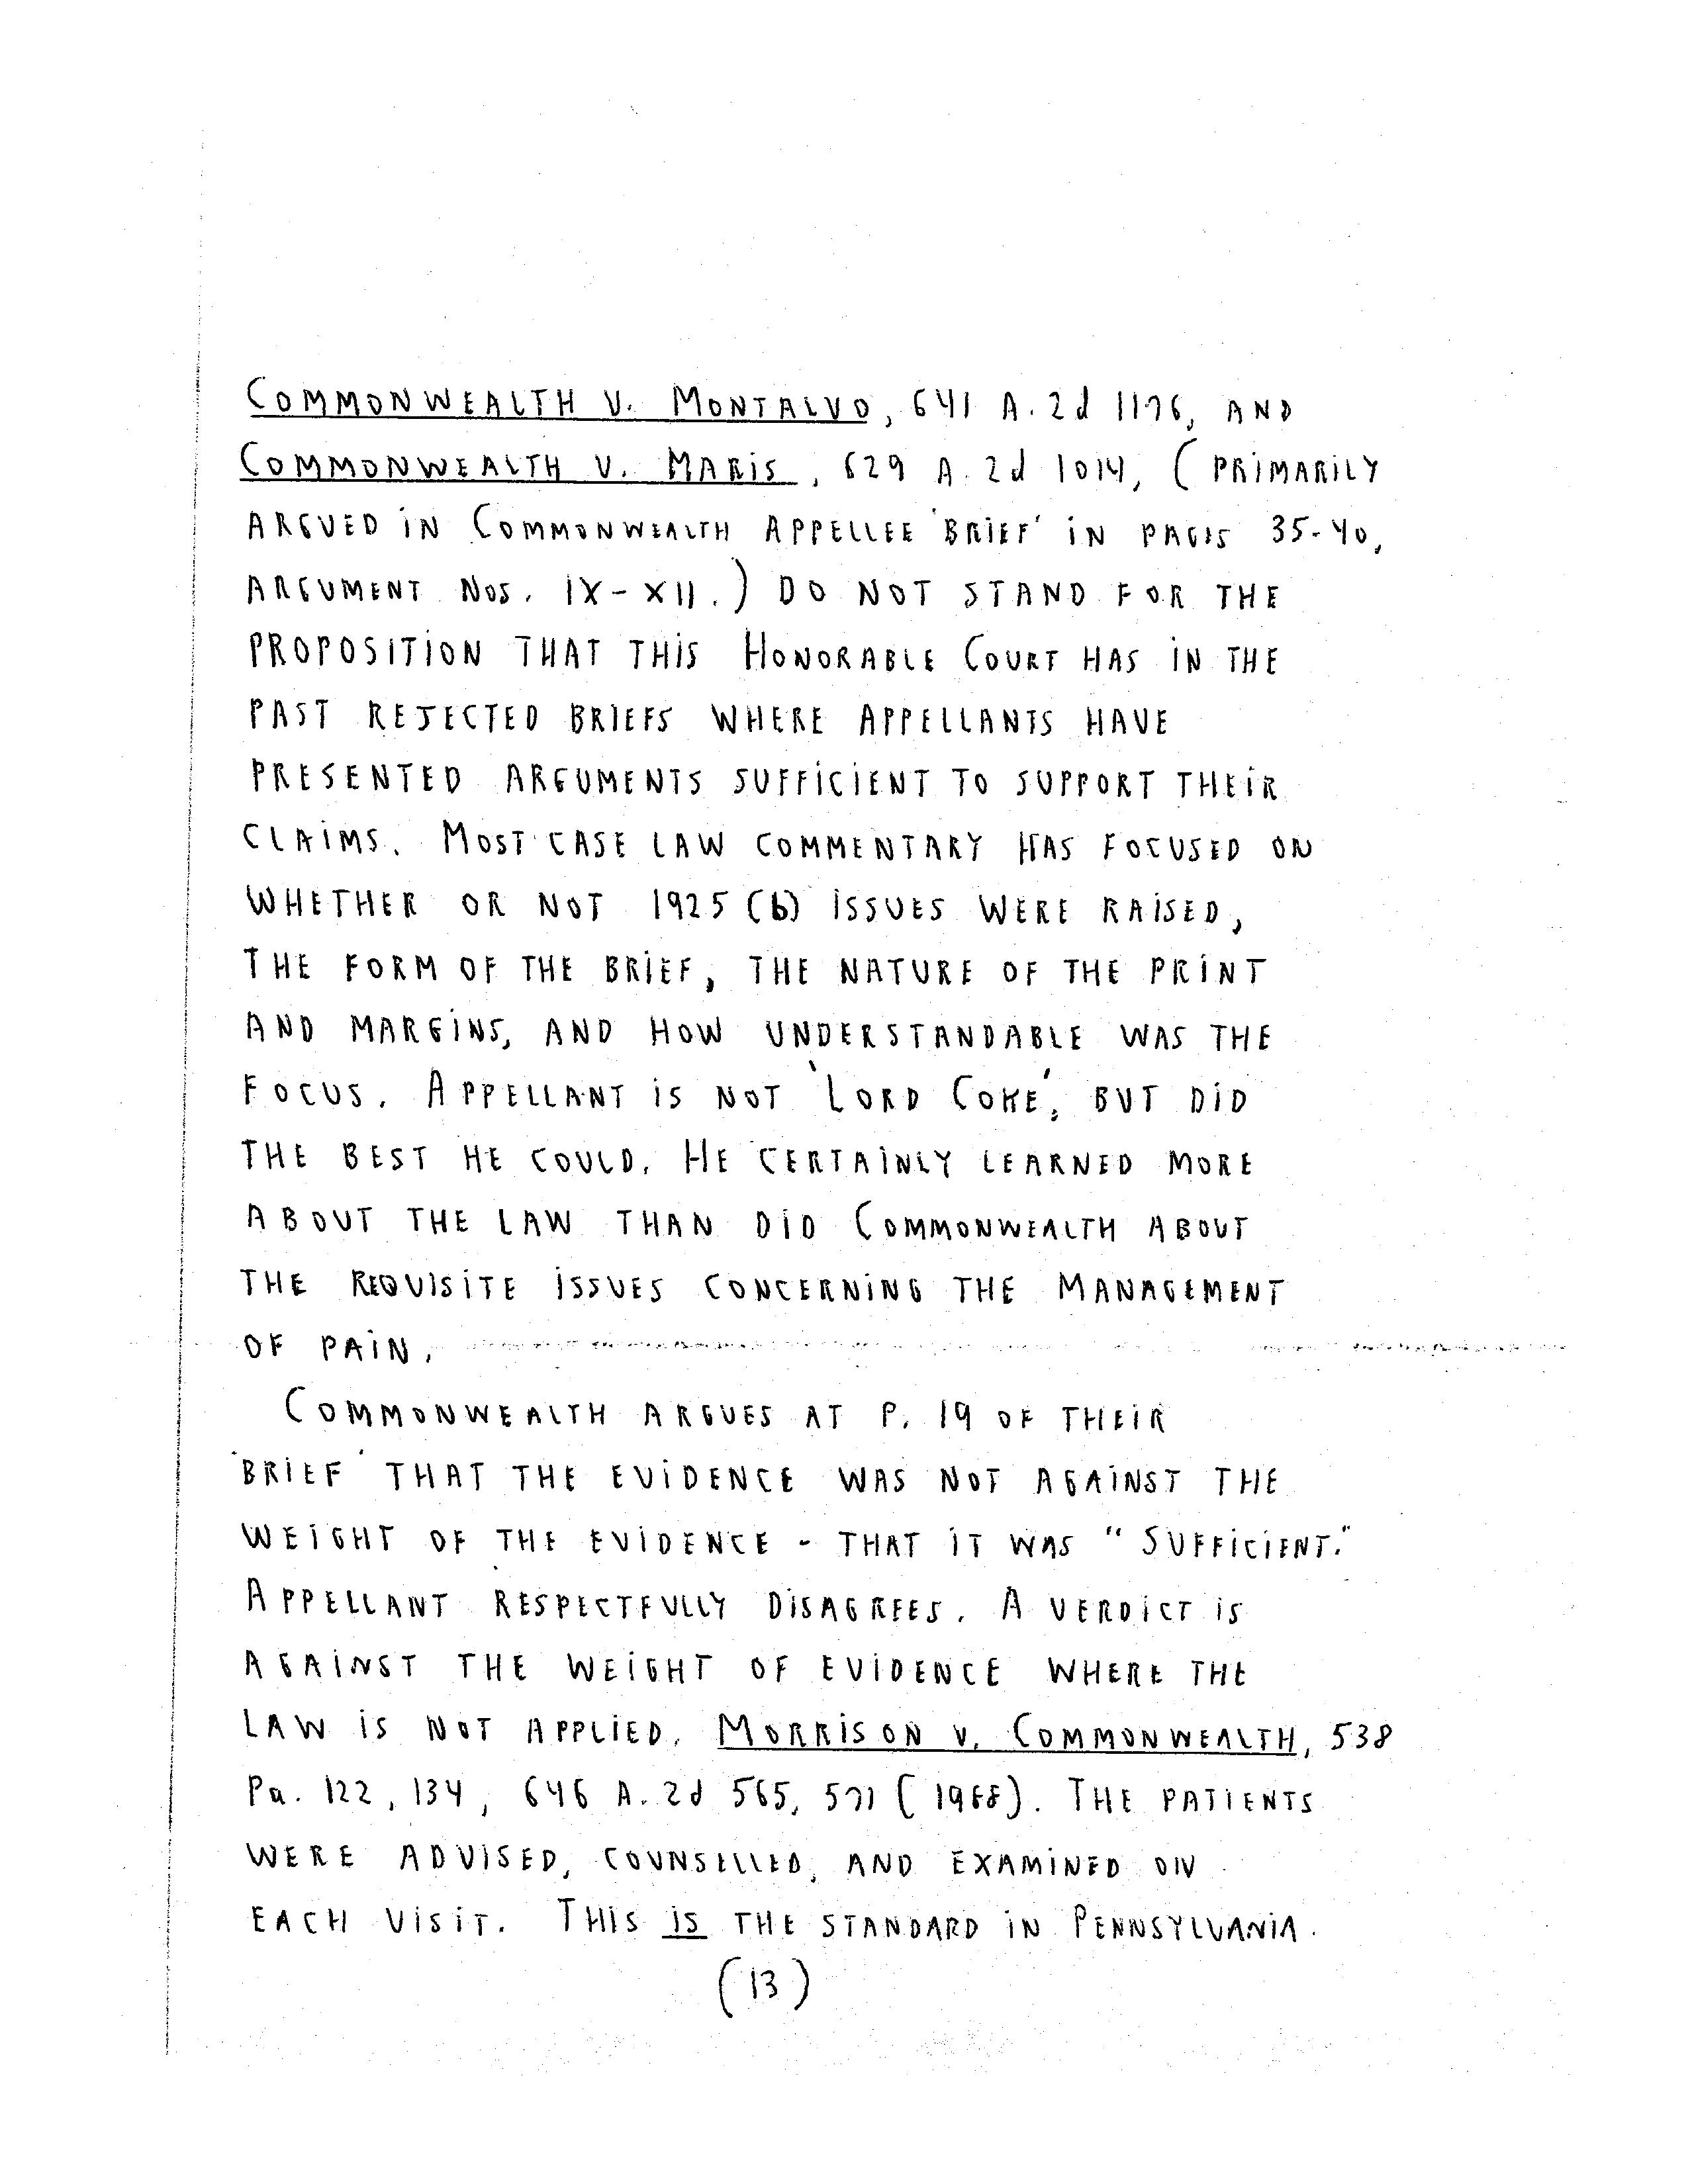 COMMONWEALTH V. MONTALVO, 641 A.2d 1176, AND
COMMONWEALTH V. MARIS, 629 A.2d 1014, (PRIMARILY
ARGUED IN COMMONWEALTH APPELLEE 'BRIEF' IN PAGES 35-40,
ARGUMENT NOS. IX-XII.) DO NOT STAND FOR THE
PROPOSITION THAT THIS HONORABLE COURT HAS IN THE
PAST REJECTED BRIEFS WHERE APPELLANTS HAVE
PRESENTED ARGUMENTS SUFFICIENT TO SUPPORT THEIR
CLAIMS. MOST CASE LAW COMMENTARY HAS FOCUSED ON
WHETHER OR NOT 1925 (b) ISSUES WERE RAISED,
THE FORM OF THE BRIEF, THE NATURE OF THE PRINT
AND MARGINS, AND HOW UNDERSTANDABLE WAS THE
FOCUS. APPELLANT IS NOT 'LORD COKE', BUT DID
THE BEST HE COULD. HE CERTAINLY LEARNED MORE
ABOUT THE LAW THAN DID COMMONWEALTH ABOUT
THE REQUISITE ISSUES CONCERNING THE MANAGEMENT
OF PAIN.
COMMONWEALTH ARGUES AT P. 19 OF THEIR
'BRIEF' THAT THE EVIDENCE WAS NOT AGAINST THE
WEIGHT OF THE EVIDENCE - THAT IT WAS "SUFFICIENT."
APPELLANT RESPECTFULLY DISAGREES. A VERDICT IS
AGAINST THE WEIGHT OF EVIDENCE WHERE THE
LAW IS NOT APPLIED. MORRISON V. COMMONWEALTH, 538
Pa. 122, 134, 646 A.2d 565, 571 (1988). THE PATIENTS
WERE ADVISED, COUNSELLED, AND EXAMINED ON
EACH VISIT. THIS IS THE STANDARD IN PENNSYLVANIA.
(13)